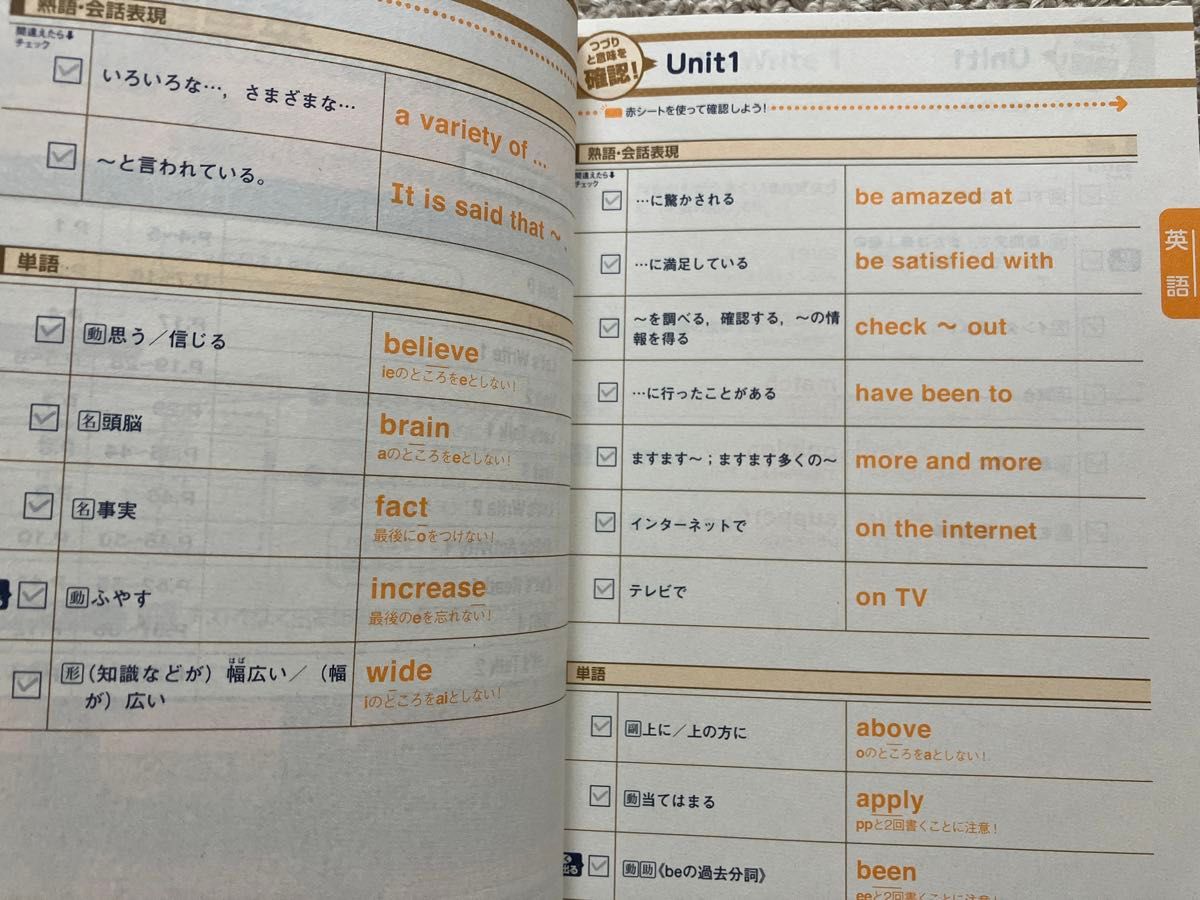 熟語・会話表現
間違えたら
チェック
いろいろな…，さまざまな…
a variety of ...
〜と言われている。
It is said that 〜 .
単語
動 思う／信じる
believe
ieのところをeとしない！
名 頭脳
brain
aのところをeとしない！
名 事実
fact
最後にoをつけない！
動 ふやす
increase
最後のeを忘れない！
形 (知識などが) 幅広い／ (幅
はば
が) 広い
wide
iのところをaiとしない！
つづり
と意味を
確認！
Unit1
赤シートを使って確認しよう！
熟語・会話表現
間違えたら
チェック
…に驚かされる
be amazed at
…に満足している
be satisfied with
〜を調べる，確認する，〜の情
報を得る
check 〜 out
…に行ったことがある
have been to
ますます〜；ますます多くの〜
more and more
インターネットで
on the internet
テレビで
on TV
単語
副 上に／上の方に
above
oのところをaとしない！
動 当てはまる
apply
ppと2回書くことに注意！
動 助 《beの過去分詞》
been
eeと2回書くことに注意！
英
語